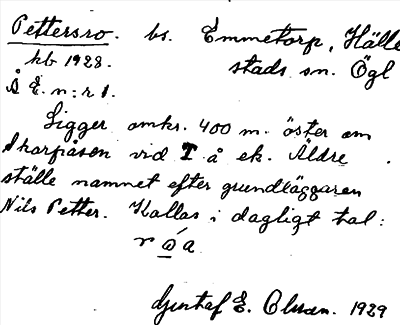 Pettersro. bs. Emmetorp, Hälle
kb 1928. stads sn. Ögl
Å E. n:r 1.
Ligger omkr. 400 m. öster om
Skarpåsen vid T å ek. Äldre
ställe namnet efter grundläggaren
Nils Petter. Kallas i dagligt tal:
Gustaf E. Olsson. 1929